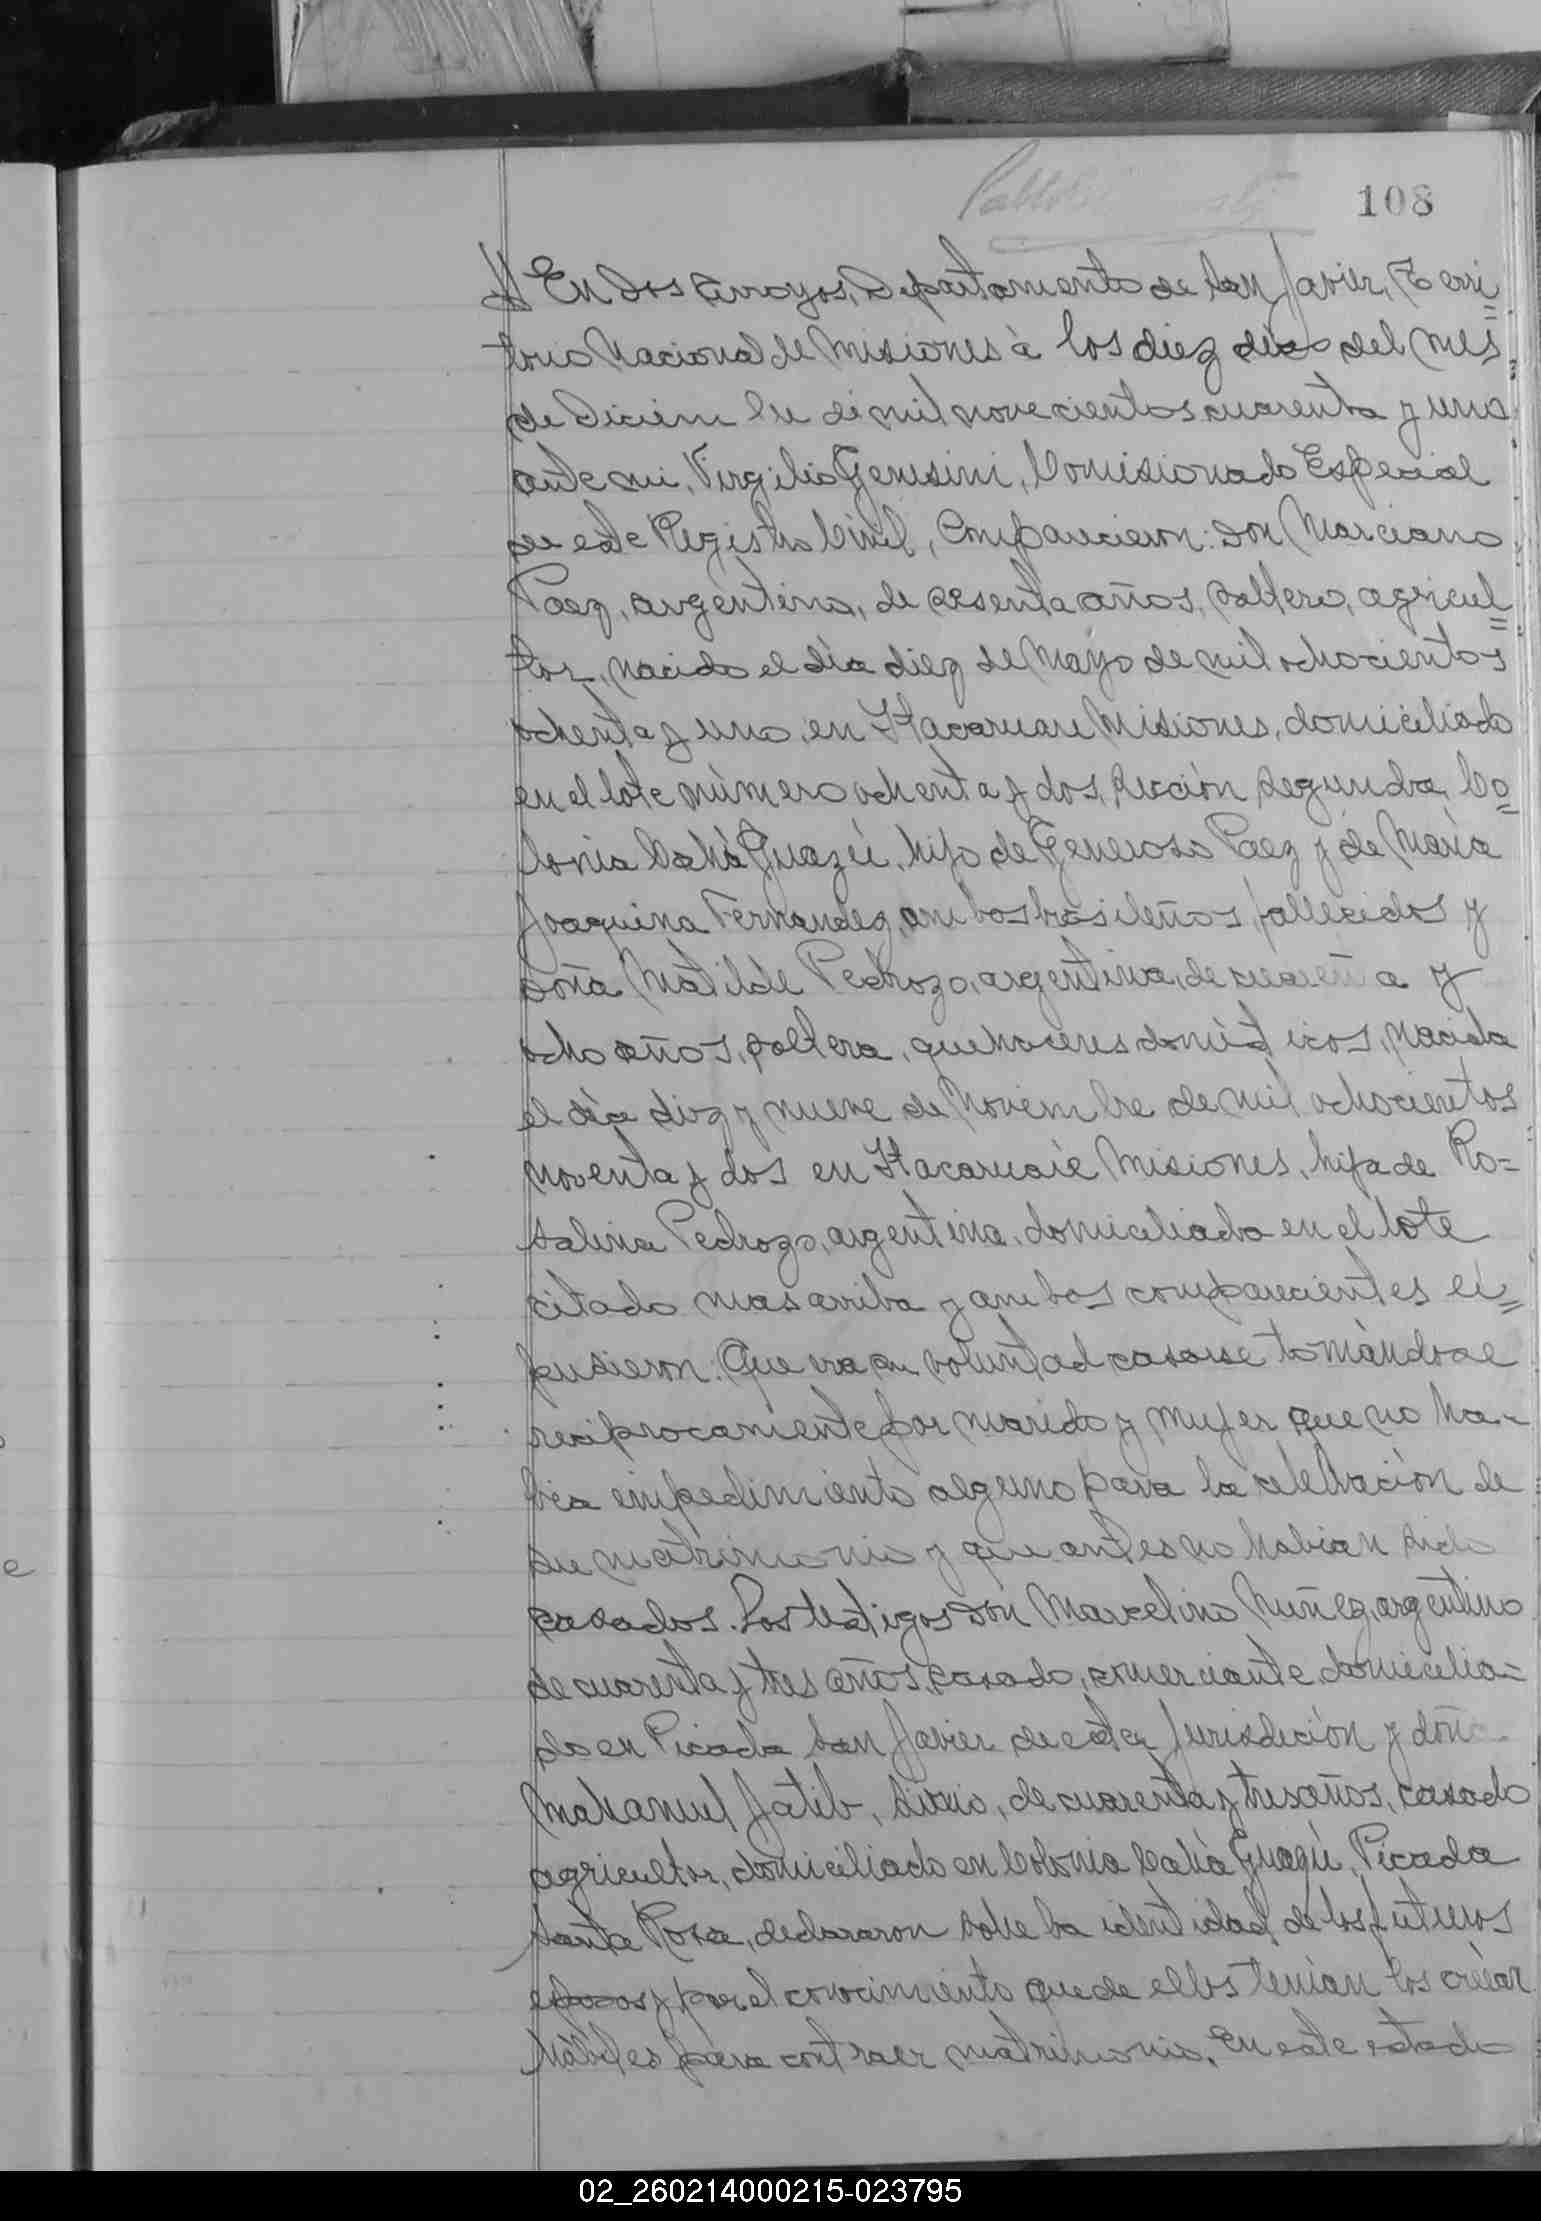 108
En Dos Arroyos, Departamento de San Javier, Terri=
torio Nacional de Misiones à los diez dias del mes
de Diciembre de mil novecientos cuarenta y uno
ante mi, Virgilio Gemsini, Comisionado Especial
de este Registro Civil, Comparecieron: Don Marciano
Paez, argentino, de sesenta años, soltero, agricul=
tor, nacido el día diez de Mayo de mil ochocientos
ochenta y uno, en Itacaruare Misiones, domiciliado
en el lote número ochenta y dos, Sección Segunda, Co=
lonia Cahà Guazú, hijo de Generoso Paez y de Maria
Joaquina Fernandez, ambos brasileños, fallecidos y
doña Matilde Pedrozo, argentina, de cuarenta y
ocho años, soltera, quehaceres domésticos, nacida
el día diez y nueve de Noviembre de mil ochocientos
noventa y dos en Itacaruare Misiones, hija de Ro=
salina Pedrozo, argentina, domiciliada en el lote
citado mas arriba y ambos comparecientes ex=
pusieron: Que era su voluntad casarse tomàndose
reciprocamente por marido y mujer que no ha=
bia impedimento alguno para la celebración de
su matrimonio y que antes no habian sido
casados. Los testigos Don Marcelino Nuñez, argentino
de cuarenta y tres años, casado, comerciante, domicilia=
do en Picada San Javier de esta Jurisdición y don
Mahamud Jatib, Sirio, de cuarenta y tres años, casado
agricultor, domiciliado en Colonia Cahà Guazú, Picada
Santa Rosa, declararon sobre la identidad de los futuros
esposos y por el conocimiento que de ellos tenian los creian
hábiles para contraer matrimonio. En este estado
02_260214000215-023795